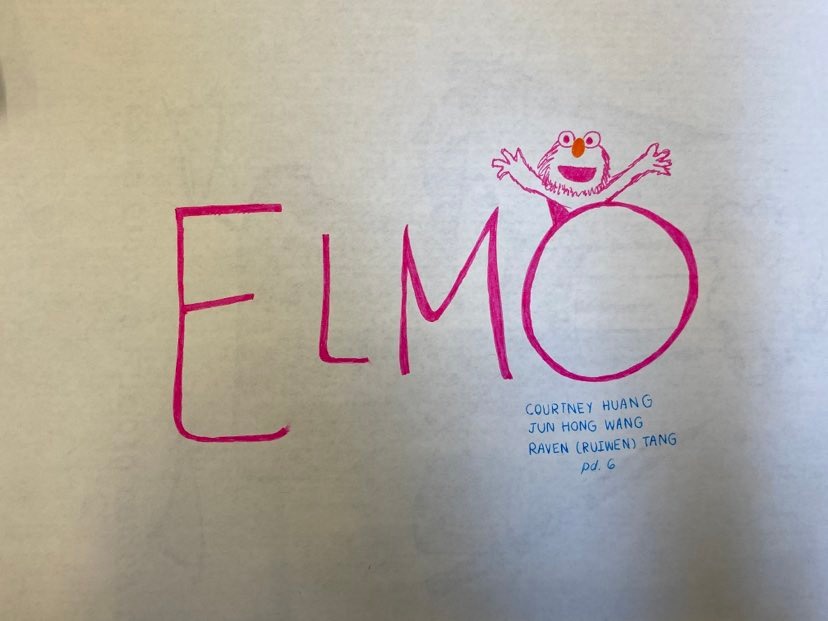 ELMO
COURTNEY HUANG
JUN HONG WANG
RAVEN (RUIWEN) TANG
pd. 6